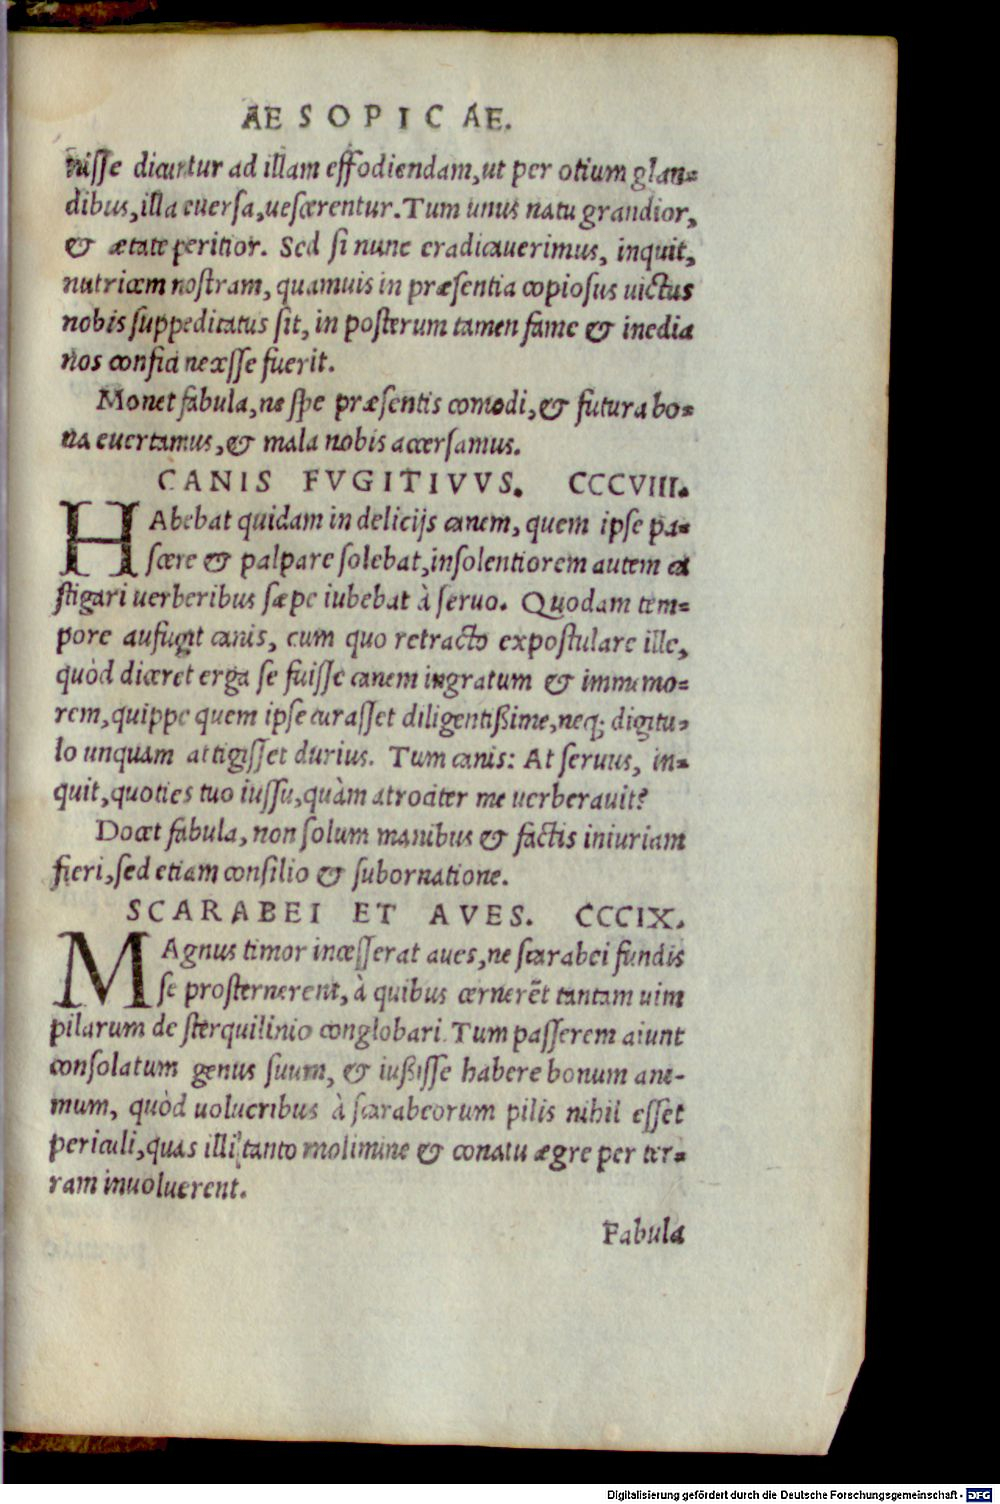 AESOPICAE.
nisse dicuntur ad illam effodiendam, ut per otium glan-
dibus, illa euersa, uescerentur. Tum unus natu grandior,
& ætate peritior. Sed si nunc eradicauerimus, inquit,
nutricem nostram, quamuis in præsentia copiosus uictus
nobis suppeditatus sit, in posterum tamen fame & inedia
nos confici necesse fuerit.
Monet fabula, ne spe præsentis comodi, & futura bo-
na euertamus, & mala nobis accersamus.
CANIS FVGITIVVS. CCCVIII.
HAbebat quidam in delicijs canem, quem ipse pa-
scere & palpare solebat, insolentiorem autem ca
stigari uerberibus sæpe iubebat à seruo. Quodam tem-
pore aufugit canis, cum quo retracto expostulare ille,
quòd diceret erga se fuisse canem ingratum & immemo-
rem, quippe quem ipse curasset diligentißime, neq; digitu-
lo unquam attigisset durius. Tum canis: At seruus, in-
quit, quoties tuo iussu, quàm atrociter me uerberauit?
Docet fabula, non solum manibus & factis iniuriam
fieri, sed etiam consilio & subornatione.
SCARABEI ET AVES. CCCIX.
MAgnus timor incesserat aues, ne scarabei fundis
se prosternerent, à quibus cernerēt tantam uim
pilarum de sterquilinio conglobari. Tum passerem aiunt
consolatum genus suum, & iußisse habere bonum ani-
mum, quòd uolucribus à scarabeorum pilis nihil esset
periculi, quas illi tanto molimine & conatu ægre per ter-
ram inuoluerent.
Fabula
Digitalisierung gefördert durch die Deutsche Forschungsgemeinschaft - DFG